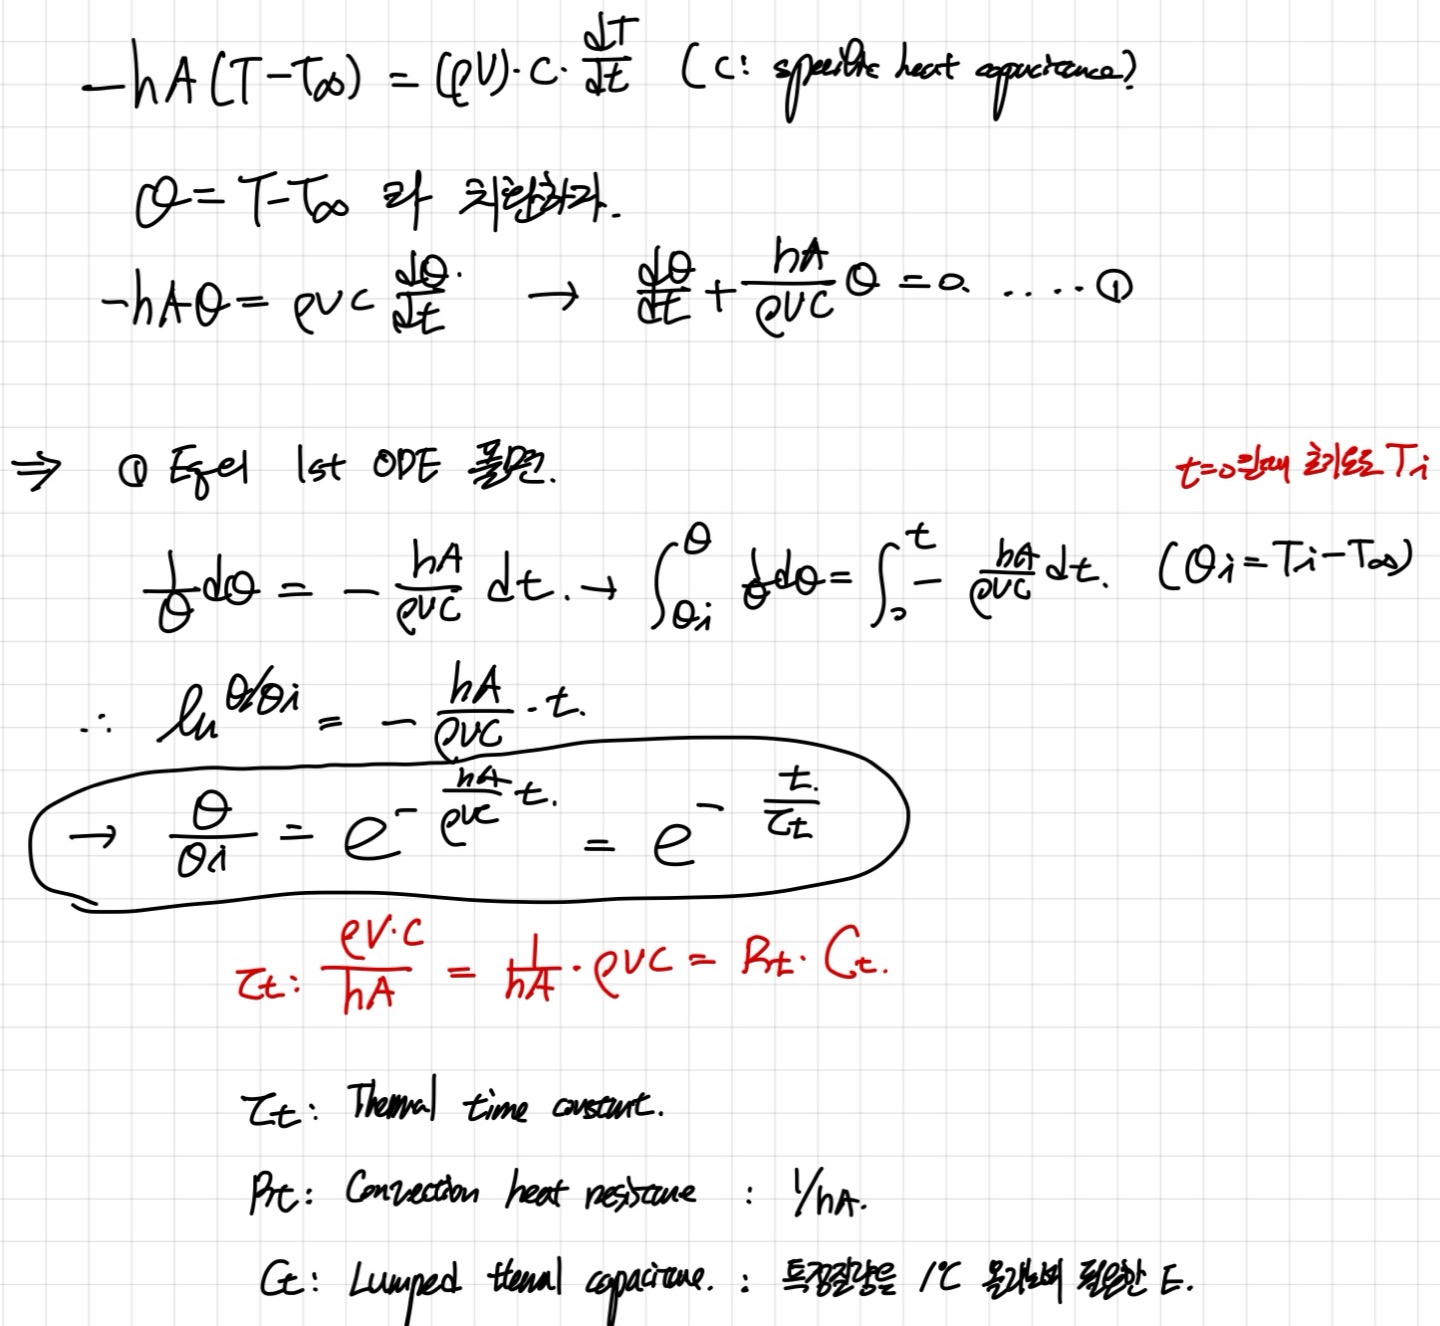 -hA(T-T∞) = (ρV)·C·dT/dt (C: specific heat capacitance)
θ = T-T∞ 라 치환하자.
-hAθ = ρVC dθ/dt → dθ/dt + hA/ρVC θ = 0. ....①
⇒ ① Eqel 1st ODE 풀면.
t=0일때 초기온도 Ti
1/θ dθ = - hA/ρVC dt. → ∫θi^θ 1/θ dθ = ∫0^t - hA/ρVC dt. (θi = Ti-T∞)
∴ ln θ/θi = - hA/ρVC · t.
→ θ/θi = e^(- hA/ρVC t.) = e^(- t/τt)
τt: ρV·C/hA = 1/hA · ρVC = Rt · Ct.
τt: Thermal time constant.
Rt: Convection heat resistance : 1/hA.
Ct: Lumped thermal capacitance. : 특정질량을 1℃ 올리는데 필요한 E.